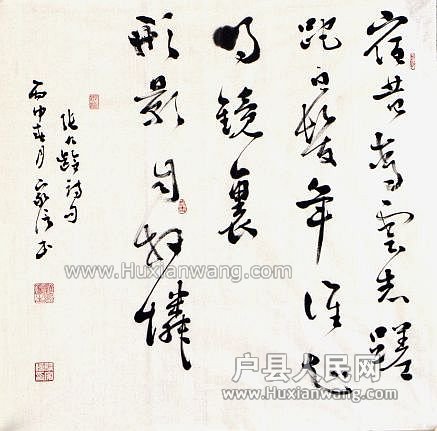 宿昔青雲志蹉
跎白髮年谁知
明镜裏
形影自相憐
张九龄诗句
丙申春月
www.Huxianwang.com
户县人民网
www.Huxianwang.com